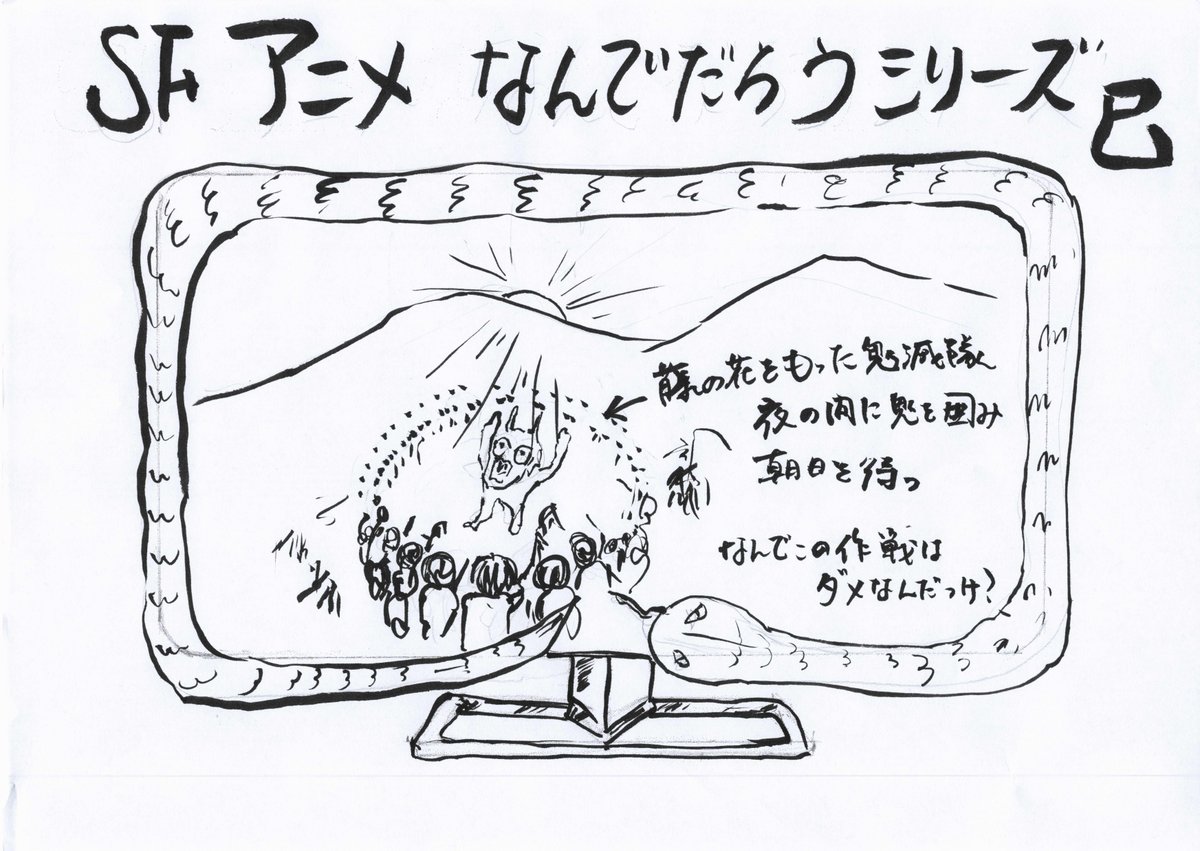 SFアニメ なんでだらうシリーズ 巳
藤の花をもった鬼滅隊
夜の内に鬼を囲み
朝日を待つ
なんでこの作戦は
ダメなんだっけ?